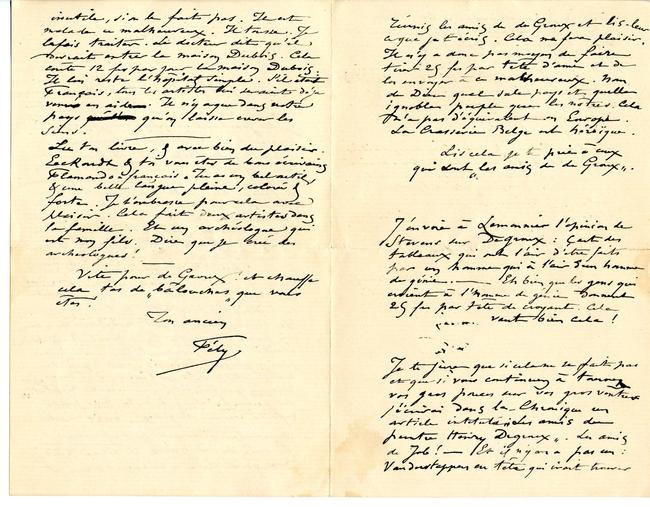 inutile, si on le fait pas. Il est
malade ce malheureux. Il tousse. Je
le fais traiter. Le docteur dit qu'il
entre la maison Dubois. Cela
coute 12 fcs par jour la maison Dubois.
l'hôpital simple. S'il était
Français, tous les artistes lui seraient déjà
venus en aide. Il n'y a que dans notre
pays qu'on laisse crever les
gens.
Lu ton livre, & avec bien du plaisir.
Eeckoudt & toi vous êtes de bons écrivains
Flamando-français. Tu as un bel actif
& une belle langue pleine, colorée &
forte. Je t'embrasse pour cela avec
plaisir. Cela fait deux artistes dans
la famille. Et un archéologue qui
est mon fils. Dire que je crée des
archéologues!
Vite pour de Groux: et chauffe
cela tas de „ que vous
êtes.
Ton ancien
Fély
Réunis les amis de de Groux et lis-leur
ce que je t'écris. Cela me fera plaisir.
Il n'y a donc pas moyen de faire
25 fcs par tête d'ami et de
les envoyer à ce malheureux. Nom
de Dieu quel sale pays et quelle
ignoble peuple que les nôtres. Cela
n'a pas d'équivalent en Europe.
La Crasserie Belge est héroïque.
Lis cela je te prie à ceux
qui sont les amis de de Groux".
J'envoie à Lemonnier l'opinion de
Stevens sur Degroux: C'est des
tableaux qui ont l'air d'être faits
par un homme qui a l'air d'un homme
de génie. — Eh bien que les gens qui
croient à l'homme de génie donnent
25 fcs par tête de croyant. Cela
vaut bien cela!
Je te jure que si cela ne se fait pas
et que si vous continuez à tourner
vos gros pouces sur vos gros ventres
j'écrirai dans la Chronique un
article intitulé „Les amis du
peintre Henry Degroux". Les amis
de Job! — Et il n'y en a pas un:
Vanderstappen en tête qui irait trouver